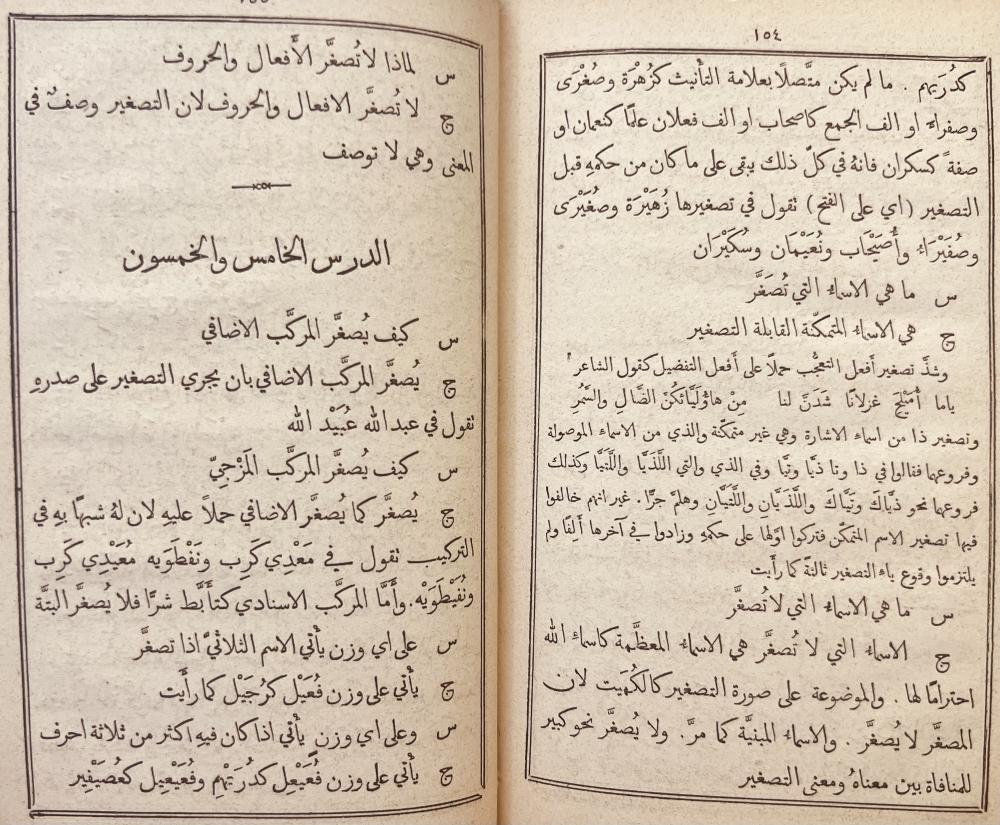 ١٥٤
كدُرَيهم . ما لم يكن متَّصلًا بعلامة التأنيث كزُهْرَة وصُغْرَى
وصفراءَ او الف الجمع كاصحاب او الف فعلان علمًا كنعمان او
صفةً كسكران فانهُ في كلّ ذلك يبقى على ما كان من حكمهِ قبل
التصغير (اي على الفتح) تقول في تصغيرها زُهَيْرَة وصُغَيْرَى
وصُفَيْرَاءَ وأُصَيْحَاب ونُعَيْمَان وسُكَيْرَان
س ما هي الاسماءُ التي تُصَغَّر
ج هي الاسماءُ المتمكّنة القابلة التصغير
وشذَّ تصغير أفعل التعجُّب حملًا على أفعل التفضيل كقول الشاعر
ياما أُمَيْلِحَ غزلانًا شَدَنَّ لنا مِنْ هاؤُلَيَّائِكُنَّ الضَّالِ والسَّمُرِ
وتصغير ذا من اسماء الاشارة وهي غير متمكّنة والذي من الاسماءِ الموصولة
وفروعها فقالوا في ذا وتا ذَيَّا وتَيَّا وفي الذي والتي اللَّذَيَّا واللَّتَيَّا وكذلك
فروعها نحو ذَيَّاكَ وتَيَّاكَ واللَّذَيَّانِ واللَّتَيَّانِ وهلمَّ جرًّا . غير انهم خالفوا
فيها تصغير الاسم المتمكّن فتركوا اوَّلها على حكمهِ وزادوا في آخرها أَلِفًا ولم
يلتزموا وقوع ياءِ التصغير ثالثةً كما رأَيت
س ما هي الاسماءُ التي لا تُصغَّر
ج الاسماءُ التي لا تُصغَّر هي الاسماءُ المعظَّمة كاسماءِ الله
احترامًا لها . والموضوعة على صورة التصغير كالكُمَيت لان
المصغَّر لا يُصغَّر . والاسماءُ المبنيَّة كما مرَّ . ولا يُصغَّر نحو كبير
للمنافاة بين معناهُ ومعنى التصغير
س لماذا لا تُصغَّر الأَفعال والحروف
ج لا تُصغَّر الافعال والحروف لان التصغير وصفٌ في
المعنى وهي لا توصف
الدرس الخامس والخمسون
س كيف يُصغَّر المركَّب الاضافي
ج يُصغَّر المركَّب الاضافي بان يجري التصغير على صدرهِ
تقول في عبد الله عُبَيْد الله
س كيف يُصغَّر المركَّب المَزْجيّ
ج يُصغَّر كما يُصغَّر الاضافي حملًا عليهِ لان لهُ شبهًا بهِ في
التركيب تقول في مَعْدِي كَرِب ونَفْطَوَيه مُعَيْدِي كَرِب
ونُفَيْطَوَيْه. وأَمَّا المركَّب الاسنادي كتأَبَّط شرًّا فلا يُصغَّر البتَّة
س على اي وزن يأتي الاسم الثلاثيّ اذا تصغَّر
ج يأتي على وزن فُعَيْل كرُجَيْل كما رأَيت
س وعلى اي وزن يأتي اذا كان فيهِ اكثر من ثلاثة احرف
ج يأتي على وزن فُعَيْعِل كدُرَيْهِم وفُعَيْعِيل كعُصَيْفِير